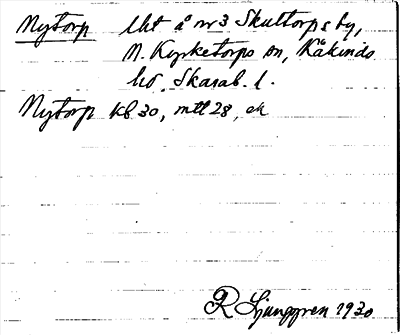 Nytorp lht å nr 3 Skattorps by,
N. Kyrketorps sn, Kåkinds
hd, Skarab. l.
Nytorp kb 30, mtl 28, ek
R Ljunggren 1930